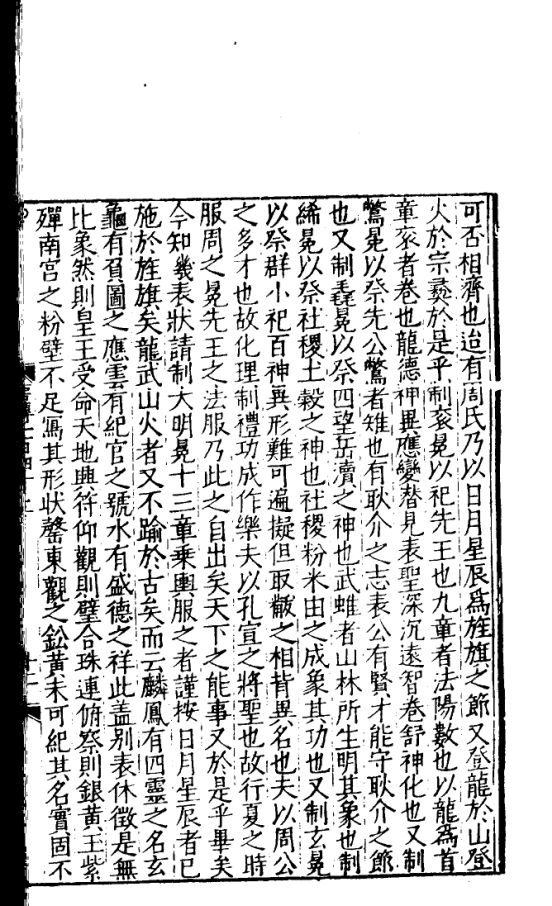 可否相濟也迨有周氏乃以日月星辰爲旌旗之節又登龍於山登
火於宗彝於是乎制衮冕以祀先王也九章者法陽數也以龍爲首
章衮者卷也龍德神異應變潛見表聖深沉遠智卷舒神化也又制
驚冕以祭先公驚者雉也有耿介之志表公有賢才能守耿介之節
也又制毳冕以祭四望岳瀆之神也武蜼者山林所生明其象也制
絺冕以祭社稷土穀之神也社稷粉米由之成象其功也又制玄冕
以祭群小祀百神異形難可遍擬但取黻之相背異名也夫以周公
之多才也故化理制禮功成作樂夫以孔宣之將聖也故行夏之時
服周之冕先王之法服乃此之自出矣天下之能事又於是乎畢矣
今知幾表狀請制大明冕十三章乗輿服之者謹按日月星辰者已
施於旌旗矣龍武山火者又不踰於古矣而云麟鳳有四靈之名玄
龜有負圖之應雲有紀官之號水有盛德之祥此盖别表休徵是無
比象然則皇王受命天地興符仰觀則璧合珠連俯祭則銀黄王紫
殫南宫之粉壁不足寫其形狀罄東觀之鈆黄未可紀其名實固不